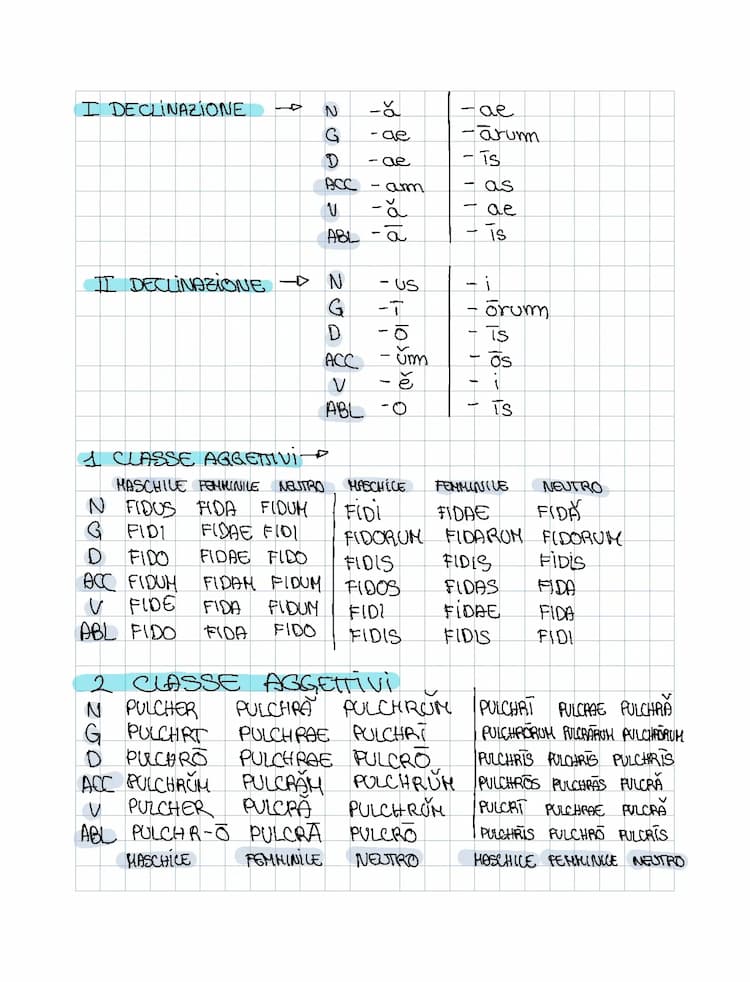 I DECLINAZIONE → N -ă | -ae
G -ae | -ārum
D -ae | -īs
ACC -am | -as
V -ă | -ae
ABL -ā | -īs
II DECLINAZIONE → N -us | -i
G -ī | -ōrum
D -ō | -īs
ACC -ŭm | -ōs
V -ĕ | -i
ABL -o | -īs
1 CLASSE AGGETTIVI →
MASCHILE FEMMINILE NEUTRO MASCHILE FEMMINILE NEUTRO
N FIDUS FIDA FIDUM | FIDI FIDAE FIDĂ
G FIDI FIDAE FIDI | FIDORUM FIDARUM FIDORUM
D FIDO FIDAE FIDO | FIDIS FIDIS FIDIS
ACC FIDUM FIDAM FIDUM | FIDOS FIDAS FIDA
V FIDE FIDA FIDUM | FIDI FIDAE FIDA
ABL FIDO FIDA FIDO | FIDIS FIDIS FIDI
2 CLASSE AGGETTIVI
N PULCHER PULCHRĂ PULCHRŬM | PULCHRĪ PULCRAE PULCHRĂ
G PULCHRI PULCHRAE PULCHRĪ | PULCHRŌRUM PULCRĀRUM PULCHRŌRUM
D PULCHRŌ PULCHRAE PULCRŌ | PULCHRĪS PULCHRĪS PULCHRĪS
ACC PULCHRŬM PULCRĂM PULCHRŬM | PULCHRŌS PULCHRĀS PULCRĂ
V PULCHER PULCRĂ PULCHRŬM | PULCRĪ PULCHRAE PULCRĂ
ABL PULCHR-Ō PULCRĀ PULCRŌ | PULCHRĪS PULCHRŌ PULCRĪS
MASCHILE FEMMINILE NEUTRO MASCHILE FEMMINILE NEUTRO